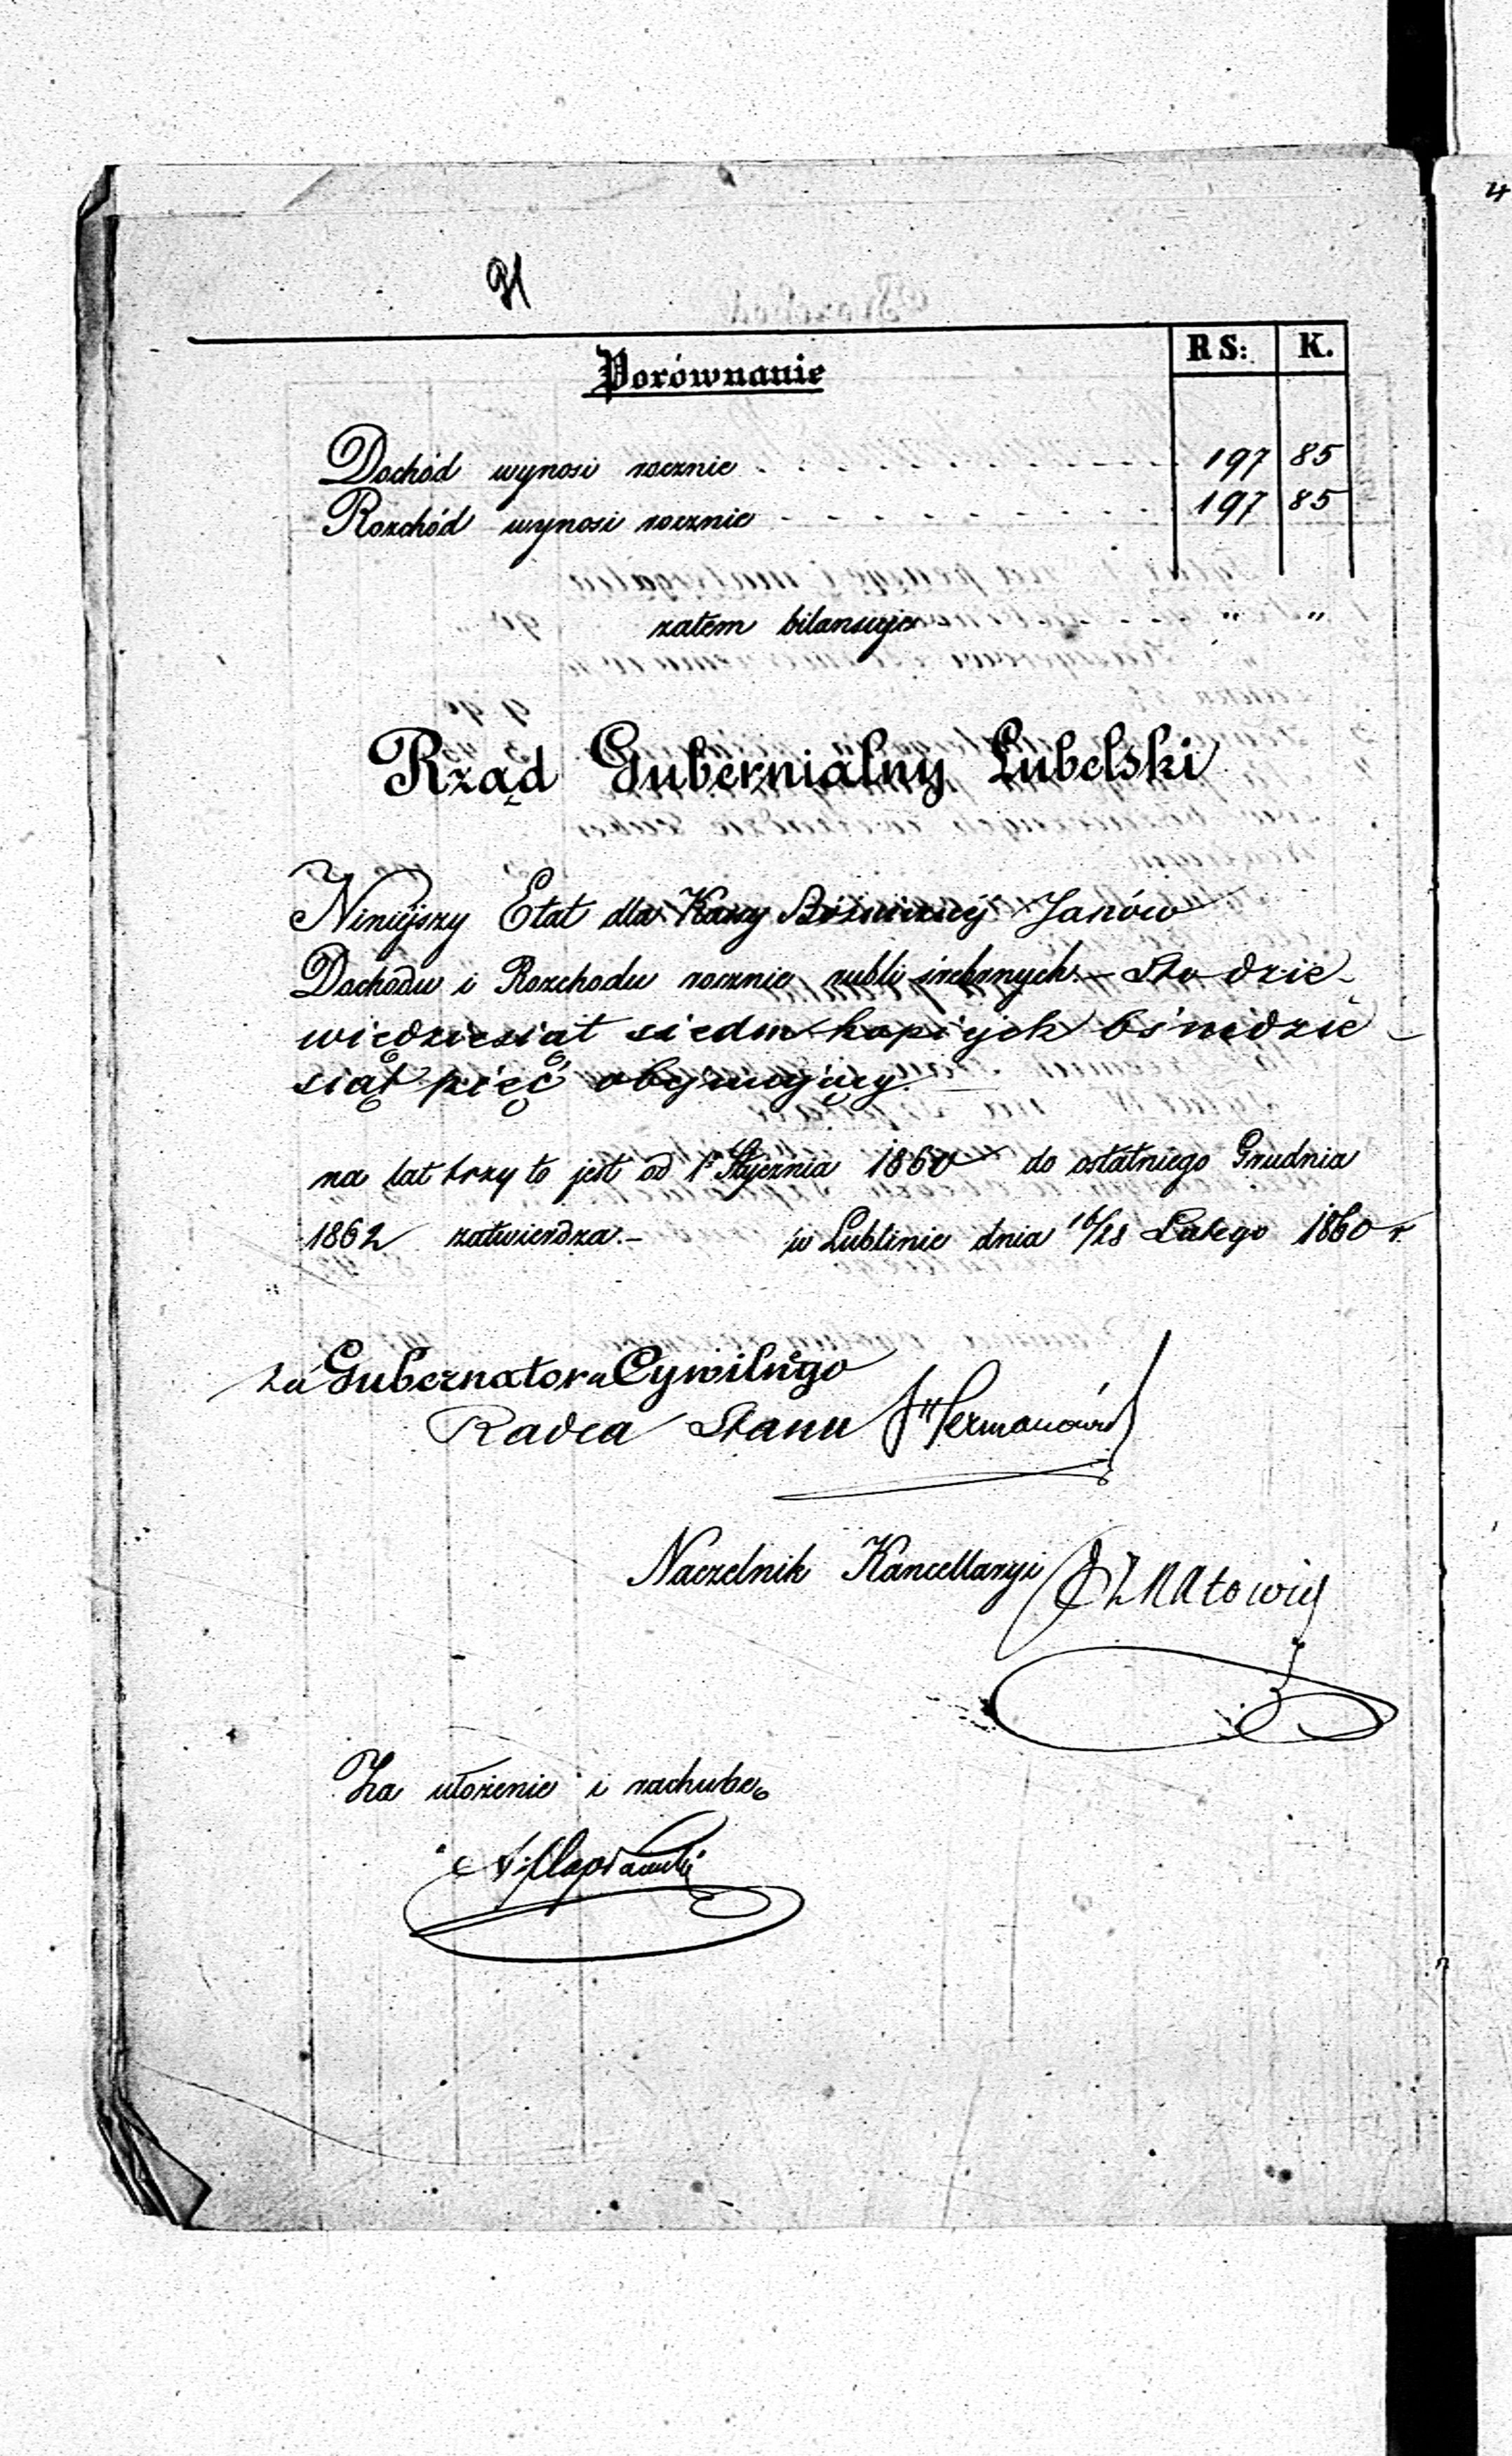 Porównanie
RS: K.
Dochód wynosi rocznie . . . . . . . . 197 85
Rozchód wynosi rocznie . . . . . . . . 197 85
zatem bilansuje „ „
Rząd Gubernialny Lubelski
Niniejszy Etat dla Kassy Bóżniczej Janów
Dochodu i Rozchodu rocznie rubli srebrnych Sto dzie-
więdziesiąt siedm kopiejek óśmdzie-
siąt pięć obejmujący.
na lat trzy to jest od 1º Stycznia 1860 do ostatniego Grudnia
1862 zatwierdza.- w Lublinie dnia 16/28 Lutego 1860 r.
za Gubernatora Cywilnego
Radca Stanu
Naczelnik Kancellaryi
Za ułożenie i rachubę
4